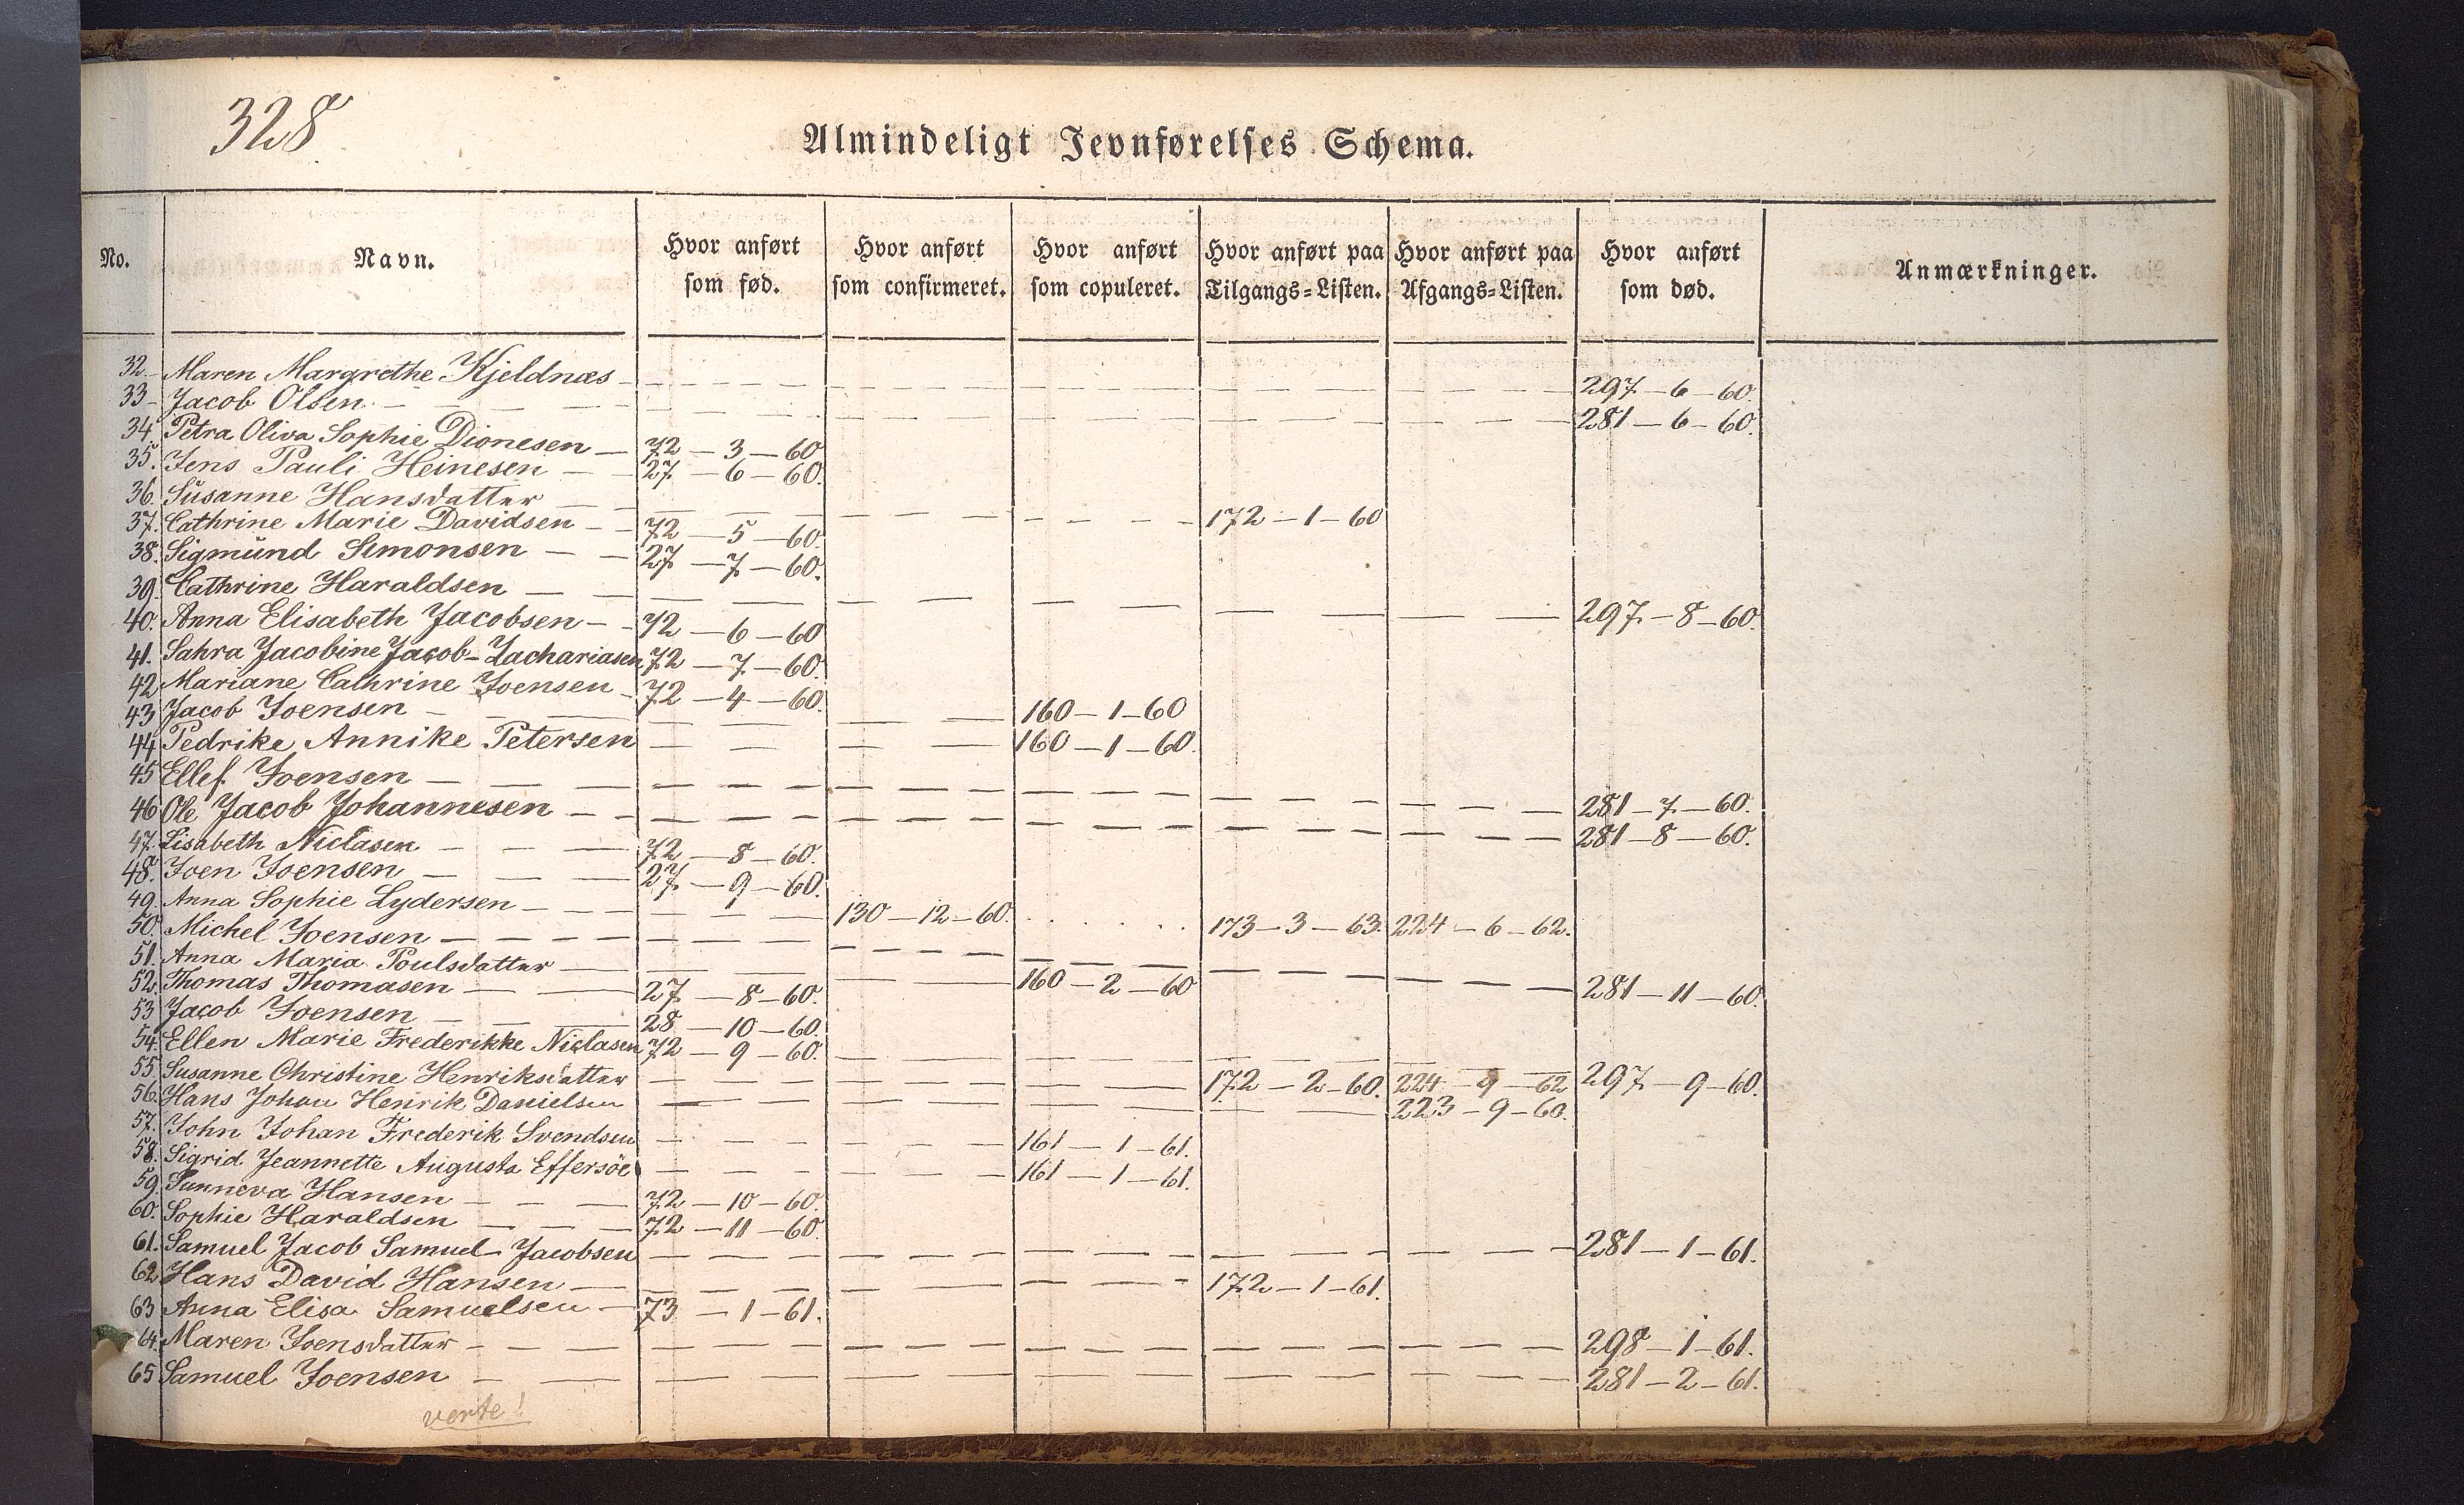 328.
Almindeligt Jevnførelses Schema.
No. Navn. Hvor anført som fød. Hvor anført som confirmeret. Hvor anført som copuleret. Hvor anført paa Tilgangs=Listen. Hvor anført paa Afgangs=Listen. Hvor anført som død. Anmærkninger.
32. Maren Margrethe Kjeldnæs 297 - 6 - 60.
33 Jacob Olsen 281 - 6 - 60.
34. Petra Oliva Sophie Dionesen 72 - 3 - 60
35. Jens Pauli Heinesen 27 - 6 - 60.
36. Susanne Hansdatter 172 - 1 - 60
37. Cathrine Marie Davidsen 72 - 5 - 60.
38. Sigmund Simonsen 27 - 7 - 60.
39. Cathrine Haraldsen 297 - 8 - 60.
40. Anna Elisabeth Jacobsen 72 - 6 - 60
41. Sahra Jacobine Jacob-Zachariasen 72 - 7 - 60.
42 Mariane Cathrine Joensen 72 - 4 - 60.
43 Jacob Joensen 160 - 1 - 60
44 Pedrike Annike Petersen 160 - 1 - 60.
45 Ellef Joensen 281 - 7 - 60.
46 Ole Jacob Johannesen 281 - 8 - 60.
47. Lisabeth Niclasen 72 - 8 - 60.
48. Joen Joensen 27 - 9 - 60.
49. Anna Sophie Lydersen 130 - 12 - 60. 173 - 3 - 63. 224 - 6 - 62.
50. Michel Joensen 281 - 11 - 60.
51. Anna Maria Poulsdatter 160 - 2 - 60
52. Thomas Thomasen 27 - 8 - 60.
53 Jacob Joensen 28 - 10 - 60.
54. Ellen Marie Frederikke Niclasen 72 - 9 - 60. 297 - 9 - 60.
55. Susanne Christine Henriksdatter 172 - 2 - 60. 224 - 9 - 62
56. Hans Johan Henrik Danielsen 223 - 9 - 60.
57. John Johan Frederik Svendsen 161 - 1 - 61.
58. Sigrid Jeannette Augusta Effersöe 161 - 1 - 61.
59. Sunneva Hansen 72 - 10 - 60.
60. Sophie Haraldsen 72 - 11 - 60.
61. Samuel Jacob Samuel-Jacobsen 281 - 1 - 61.
62 Hans David Hansen 172 - 1 - 61.
63 Anna Elisa Samuelsen 73 - 1 - 61.
64. Maren Joensdatter 298 - 1 - 61.
65 Samuel Joensen 281 - 2 - 61.
verte!